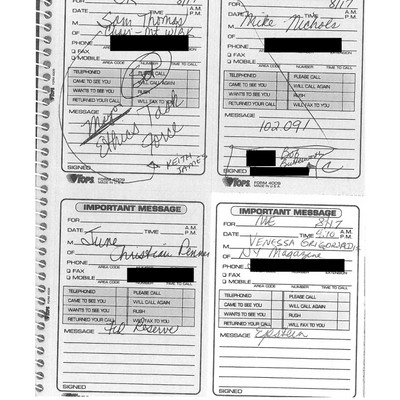 FOR OK 8/17
DATE TIME A.M. P.M.
M Sam Thomas
OF
PHONE
AREA CODE NUMBER TIME TO CALL
FAX
MOBILE
TELEPHONED PLEASE CALL
CAME TO SEE YOU WILL CALL AGAIN
WANTS TO SEE YOU RUSH
RETURNED YOUR CALL WILL FAX TO YOU
MESSAGE
Ethics Task
Force
KEITH
JAMES
SIGNED
TOPS FORM 4009
MADE IN U.S.A.
8/17
DATE TIME P.M.
M Mike Nichols
OF
PHONE
AREA CODE NUMBER TIME TO CALL
FAX
MOBILE
TELEPHONED PLEASE CALL
CAME TO SEE YOU WILL CALL AGAIN
WANTS TO SEE YOU RUSH
RETURNED YOUR CALL WILL FAX TO YOU
MESSAGE
102.091
Bob
SIGNED
TOPS FORM 4009
MADE IN U.S.A.
IMPORTANT MESSAGE
FOR
DATE TIME A.M. P.M.
M June
OF Christian
PHONE
AREA CODE NUMBER TIME TO CALL
FAX
MOBILE
TELEPHONED PLEASE CALL
CAME TO SEE YOU WILL CALL AGAIN
WANTS TO SEE YOU RUSH
RETURNED YOUR CALL WILL FAX TO YOU
MESSAGE Fed Reserve
SIGNED
IMPORTANT MESSAGE
FOR ME 8/17
DATE TIME 4:10 A.M. P.M.
M VENESSA GRIGORIADIS
OF NY Magazine
PHONE
AREA CODE NUMBER EXTENSION
FAX
MOBILE
AREA CODE NUMBER TIME TO CALL
TELEPHONED PLEASE CALL
CAME TO SEE YOU WILL CALL AGAIN
WANTS TO SEE YOU RUSH
RETURNED YOUR CALL WILL FAX TO YOU
MESSAGE
Epstein
SIGNED